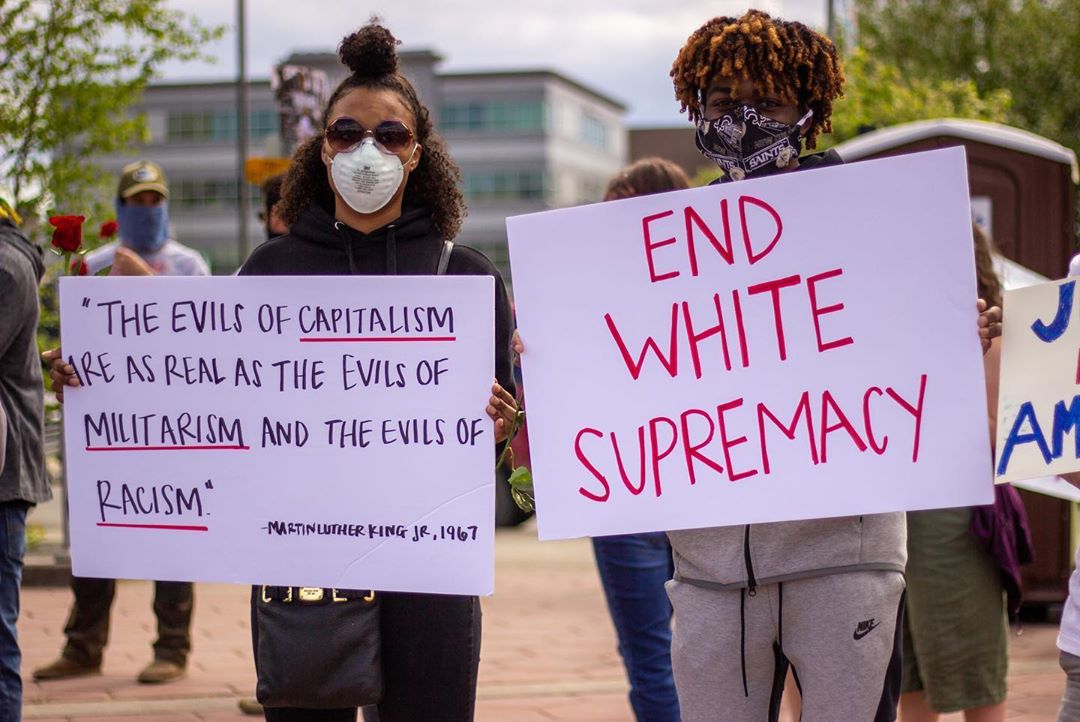 "THE EVILS OF CAPITALISM
ARE AS REAL AS THE EVILS OF
MILITARISM AND THE EVILS OF
RACISM."
-MARTIN LUTHER KING JR, 1967
END
WHITE
SUPREMACY
SAINTS
NIKE
J
AM